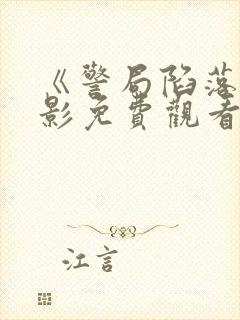 《警局陷落
影免費觀看
江言